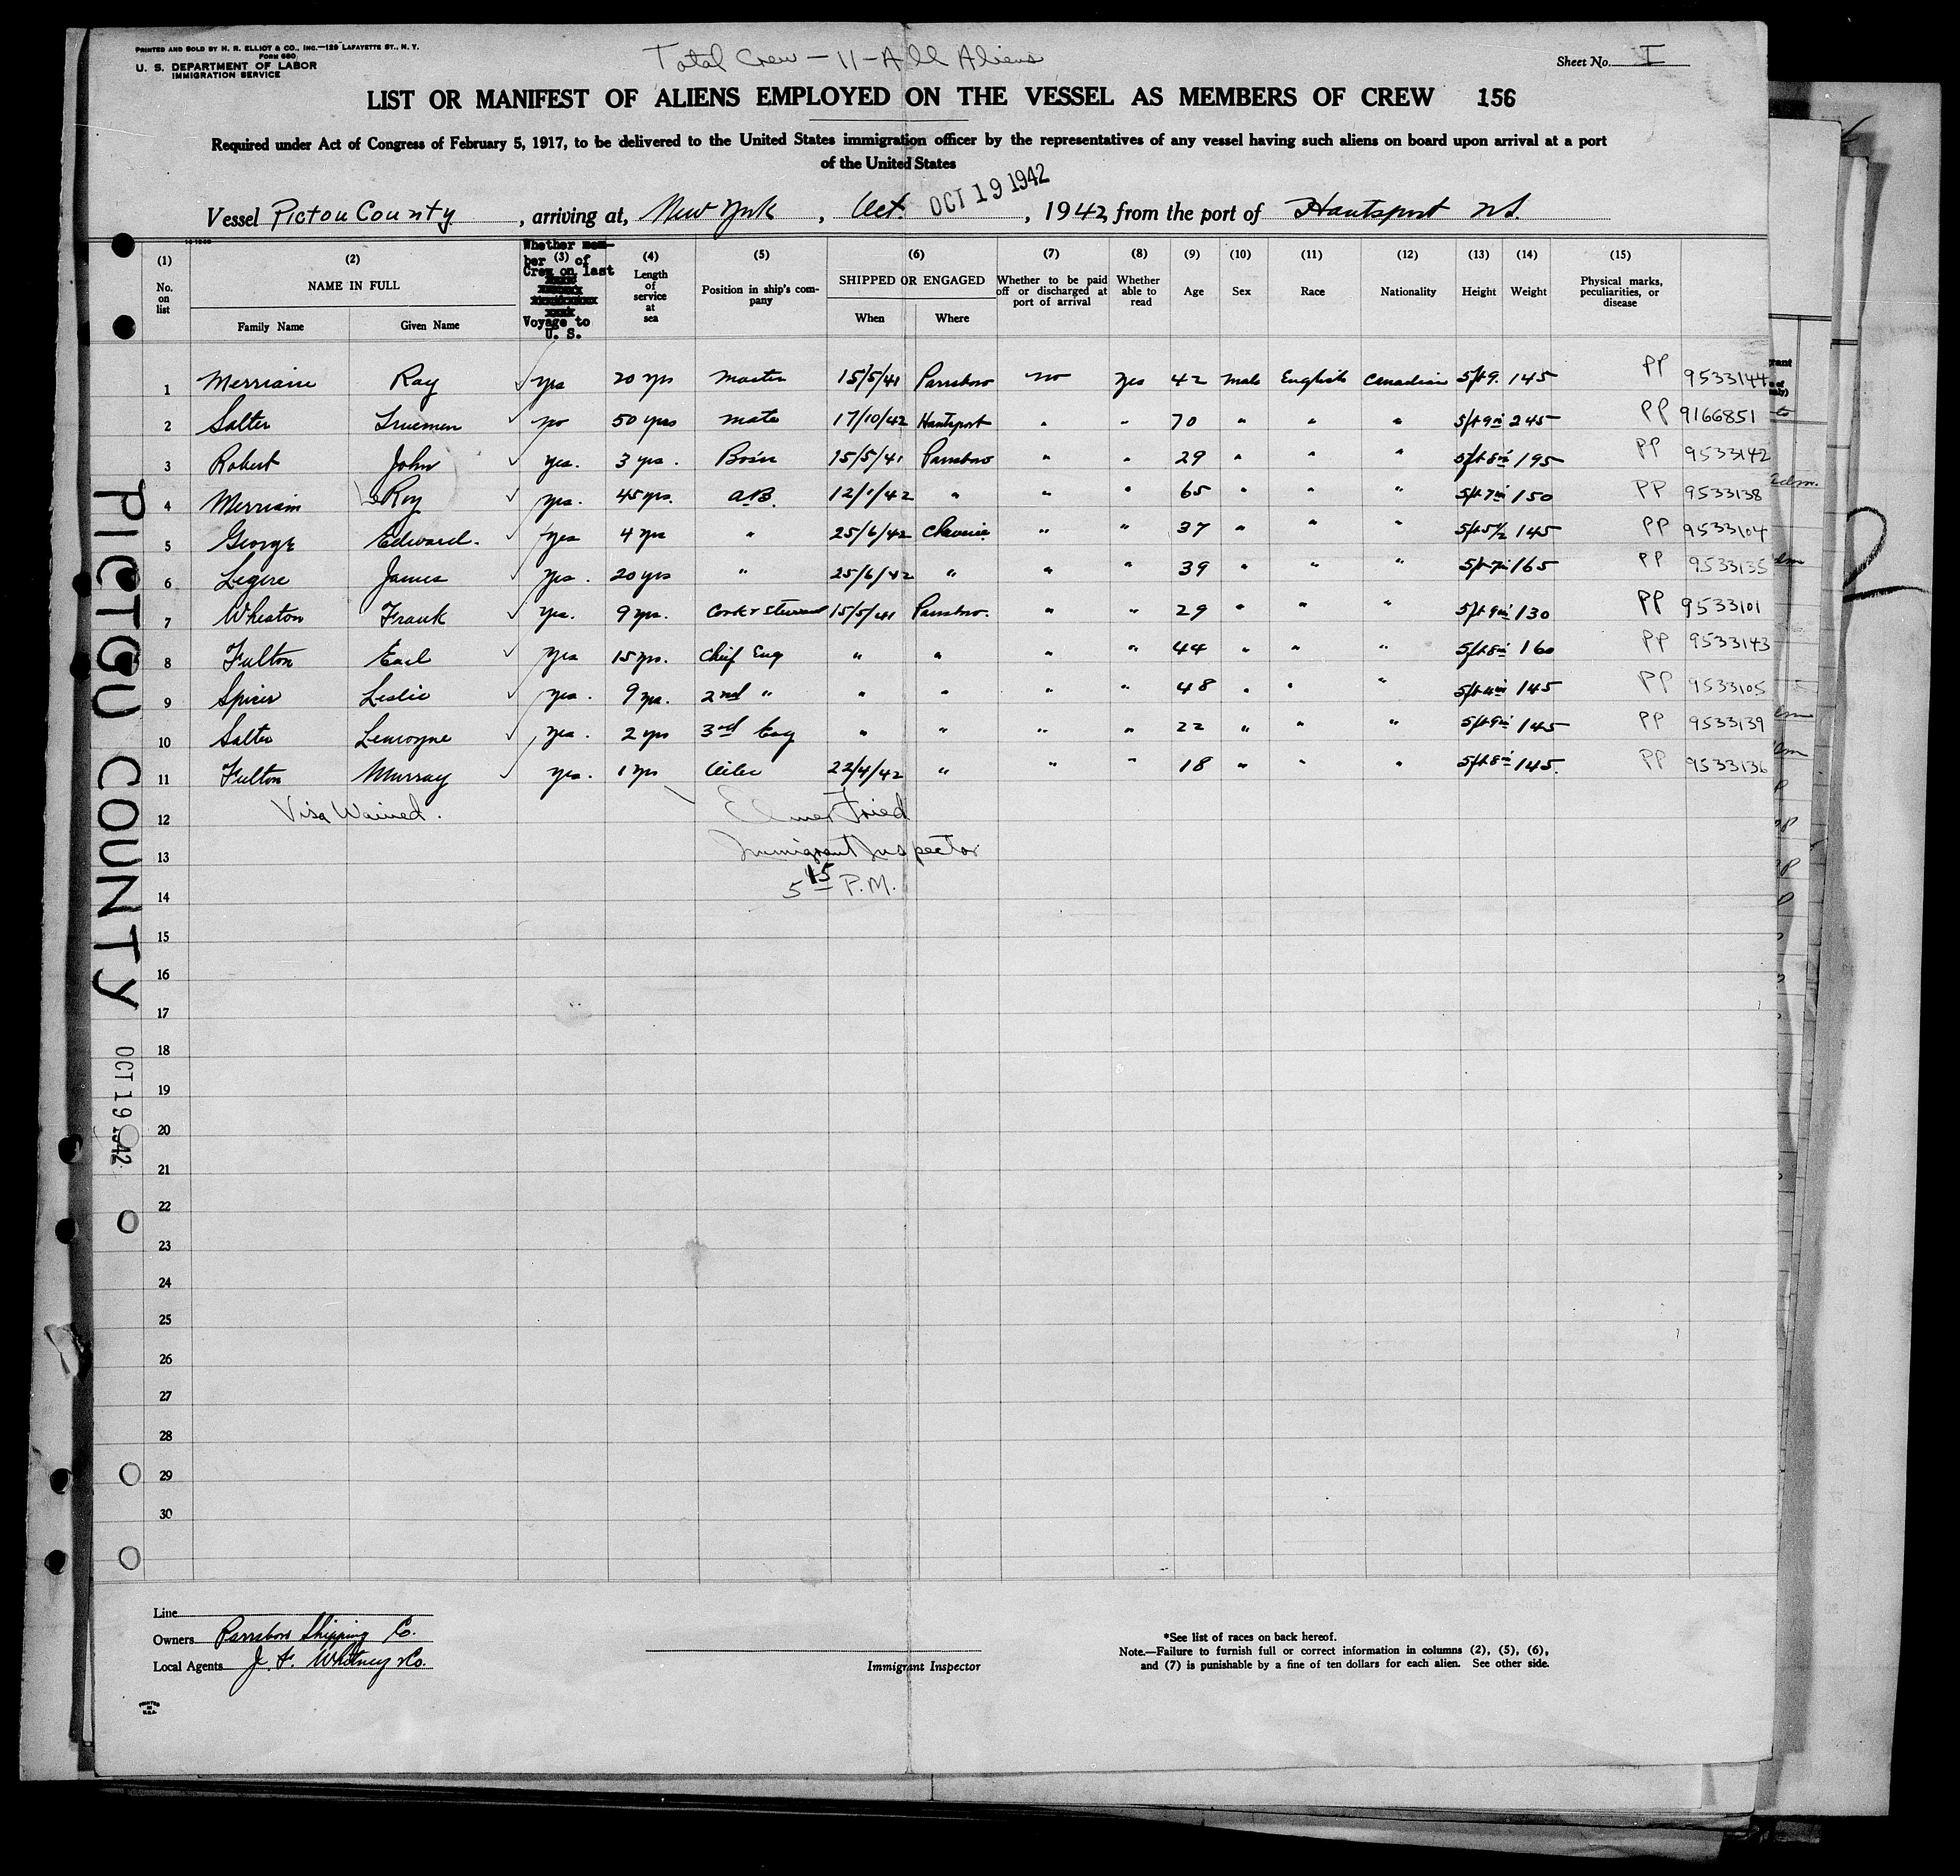 PRINTED AND SOLD BY H. R. ELLIOT & CO., INC.—129 LAFAYETTE ST., N. Y.
FORM 680
U. S. DEPARTMENT OF LABOR
IMMIGRATION SERVICE
Total Crew - 11 - All Aliens
Sheet No. I
LIST OR MANIFEST OF ALIENS EMPLOYED ON THE VESSEL AS MEMBERS OF CREW 156
Required under Act of Congress of February 5, 1917, to be delivered to the United States immigration officer by the representatives of any vessel having such aliens on board upon arrival at a port
of the United States
Vessel Pictou County, arriving at, New York, Oct. OCT 19 1942, 1942 from the port of Hantsport N.S.
(1) No. on list
(2) NAME IN FULL Family Name Given Name
Whether mem-ber (3) of Crew on last Voyage to U. S.
(4) Length of service at sea
(5) Position in ship's com-pany
(6) SHIPPED OR ENGAGED When Where
(7) Whether to be paid off or discharged at port of arrival
(8) Whether able to read
(9) Age
(10) Sex
(11) Race
(12) Nationality
(13) Height
(14) Weight
(15) Physical marks, peculiarities, or disease
1 Merriam Ray yes 20 yrs Master 15/5/41 Parrsboro no yes 42 male English Canadian 5ft 9. 145 PP 9533144
2 Salter Truemen no 50 yrs mate 17/10/42 Hantsport " " 70 " " " 5ft 9in 245 PP 9166851
3 Robert John yes. 3 yrs. Bosn 15/5/41 Parrsboro " " 29 " " " 5ft 8in 195 PP 9533142
4 Merriam LeRoy yes. 45 yrs. A.B. 12/1/42 " " " 65 " " " 5ft 7in 150 PP 9533138
5 George Edward. yes 4 yrs " 25/6/42 Cheverie " " 37 " " " 5ft 5 1/2 145 PP 9533104
6 Legere James yes. 20 yrs " 25/6/42 " " " 39 " " " 5ft 7in 165 PP 9533135
7 Wheaton Frank yes. 9 yrs. Cook & Steward 15/5/41 Parrsboro. " " 29 " " " 5ft 9in 130 PP 9533101
8 Fulton Earl yes 15 yrs. Chief Eng " " " " 44 " " " 5ft 8in 160 PP 9533143
9 Spicer Leslie yes. 9 yrs. 2nd " " " " " 48 " " " 5ft 4in 145 PP 9533105
10 Salter Lemoyne yes. 2 yrs 3rd Eng " " " " 22 " " " 5ft 9in 145 PP 9533139
11 Fulton Murray yes. 1 yrs Oiler 22/4/42 " " " 18 " " " 5ft 8in 145. PP 9533136
12 Visa Waived. Elmer Fried
13 Immigrant Inspector
14 5 15 P.M.
15
16
17
18
19
20
21
22
23
24
25
26
27
28
29
30
PICTOU COUNTY OCT 19 1942
Line
Owners Parrsboro Shipping Co.
Local Agents J. F. Whitney & Co.
Immigrant Inspector
*See list of races on back hereof.
Note.—Failure to furnish full or correct information in columns (2), (5), (6),
and (7) is punishable by a fine of ten dollars for each alien. See other side.
PRINTED IN U.S.A.
2